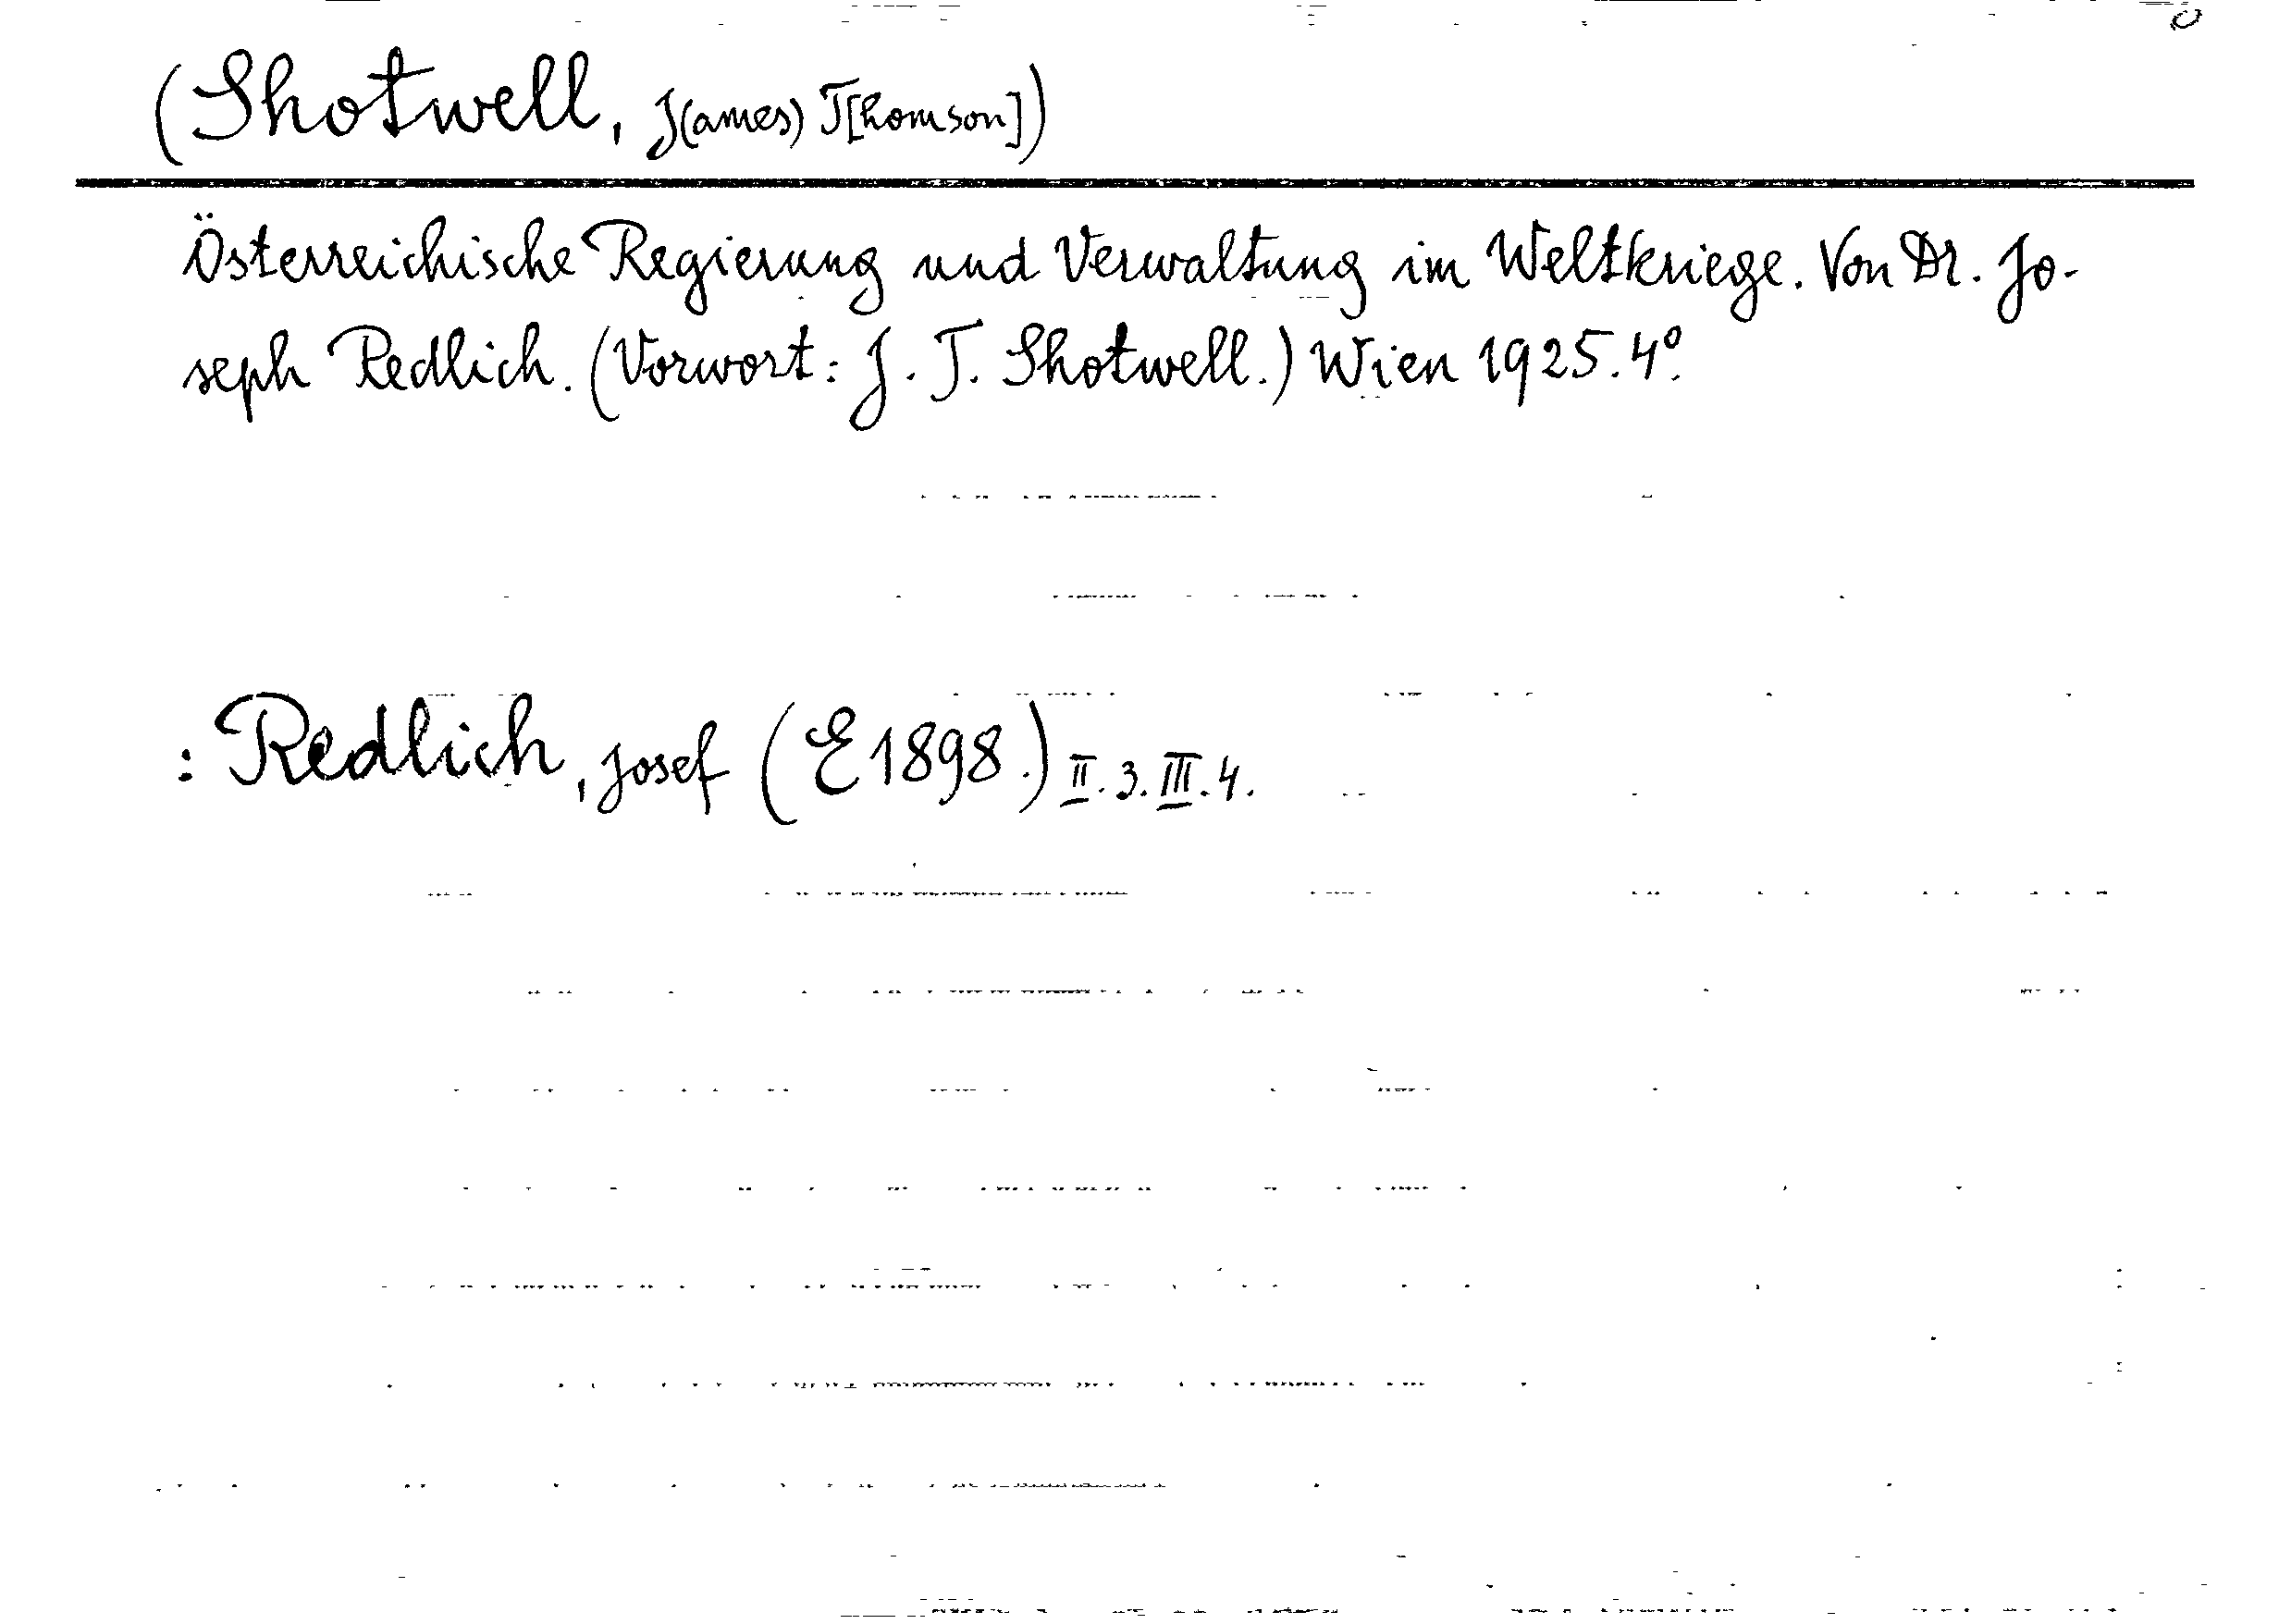 (Shotwell, J(ames) T[homson])
Österreichische Regierung und Verwaltung im Weltkriege. Von Dr. Jo-
seph Redlich. (Vorwort: J. T. Shotwell.) Wien 1925. 4º.
: Redlich, Josef (E 1898.) II. 3. III. 4.